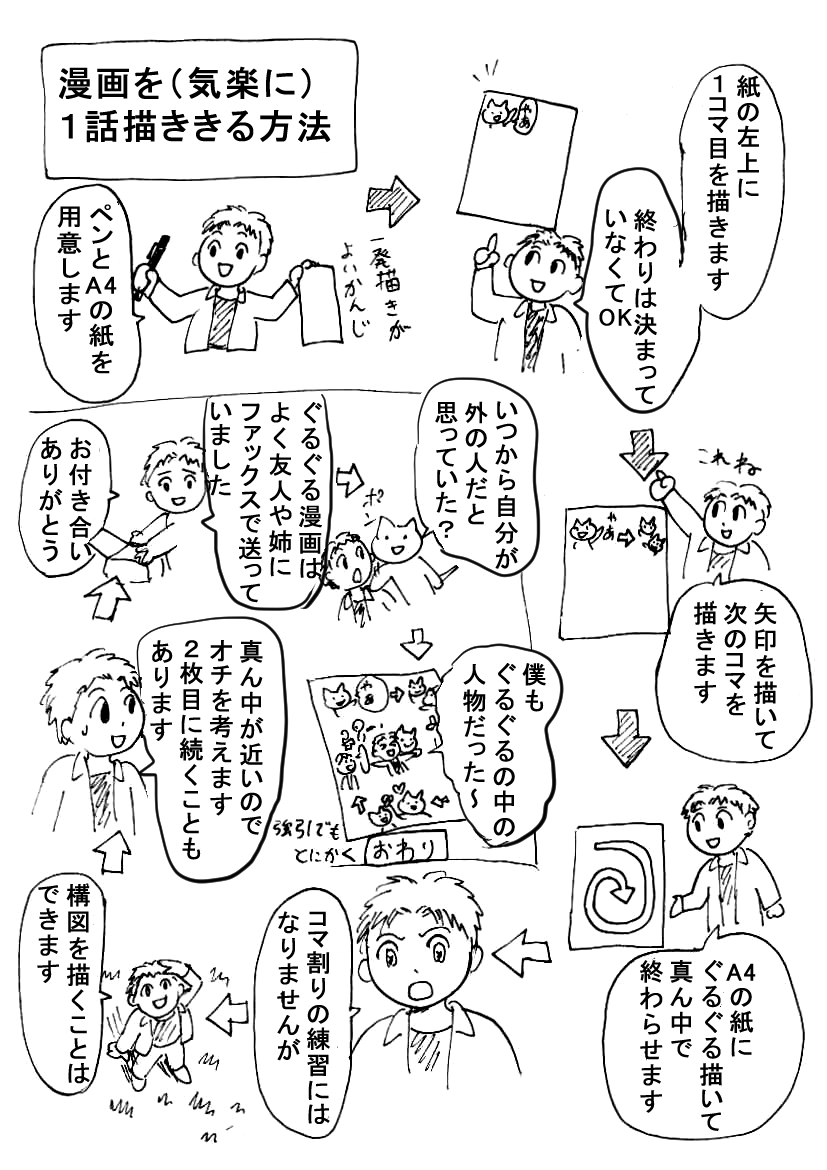 漫画を（気楽に）
１話描ききる方法
ペンと
A4の紙を
用意します
一発描きが
よいかんじ
紙の左上に
１コマ目を描きます
終わりは決まって
いなくて
OK
やあ
これね
やあ
矢印を描いて
次のコマを
描きます
A4の紙に
ぐるぐる描いて
真ん中で
終わらせます
コマ割りの練習には
なりませんが
構図を描くことは
できます
真ん中が近いので
オチを考えます
２枚目に続くことも
あります
お付き合い
ありがとう
ぐるぐる漫画は
よく友人や姉に
ファックスで送って
いました
ポン
いつから自分が
外の人だと
思っていた？
僕も
ぐるぐるの中の
人物だった～
やあ
強引でも
とにかく
おわり